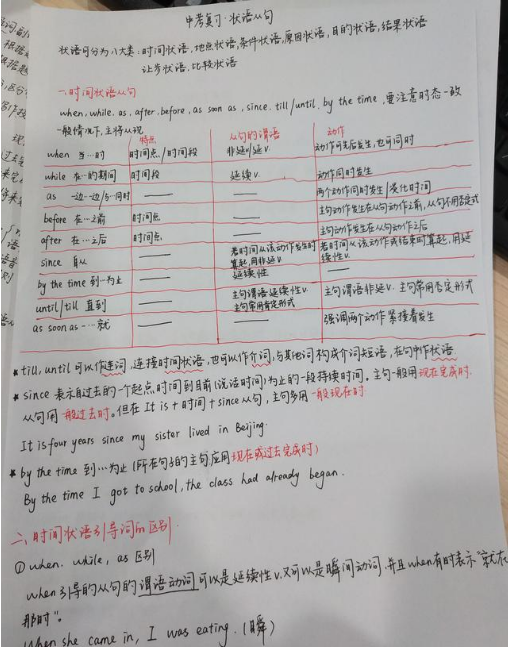 中考复习·状语从句
状语可分为八大类:时间状语,地点状语,条件状语,原因状语,目的状语,结果状语
让步状语,比较状语
一、时间状语从句
when, while, as, after, before, as soon as, since, till/until, by the time, 要注意时态一致
一般情况下,主将从现
特点 从句的谓语 动作
when 当…时 时间点/时间段 非延v/延v. 动作可先后发生,也可同时
while 在…的期间 时间段 延续v. 动作同时发生
as 一边…边/与…同时 —— —— 两个动作同时发生/强化时间
before 在…之前 时间点 —— 主句动作发生在从句动作之前,从句不用否定式
after 在…之后 时间点 —— 主句动作发生在从句动作之后
since 自从 —— 若时间从该动作发生时算起,用非延v 若时间从该动作或结束时算起,用延续性v.
by the time 到…为止 —— 延续性
until/till 直到 —— 主句谓语延续性v. 主句常用肯定形式 主句谓语非延v. 主句常用否定形式
as soon as …就 —— 强调两个动作紧接着发生
* till, until可以作连词,连接时间状语,也可以作介词,与其他词构成介词短语,在句中作状语
* since 表示自过去的一个起点时间到目前(说话时间)为止的一段持续时间。主句一般用现在完成时.
从句用一般过去时。但在It is+时间+since从句,主句多用一般现在时.
It is four years since my sister lived in Beijing.
* by the time 到…为止 (所在句子的主句应用现在或过去完成时)
By the time I got to school, the class had already began.
二、时间状语引导词的区别
① when. while, as 区别
when引导的从句的谓语动词可以是延续性v.又可以是瞬间动词,并且when有时表示“就在
那时”。
When she came in, I was eating. (瞬)